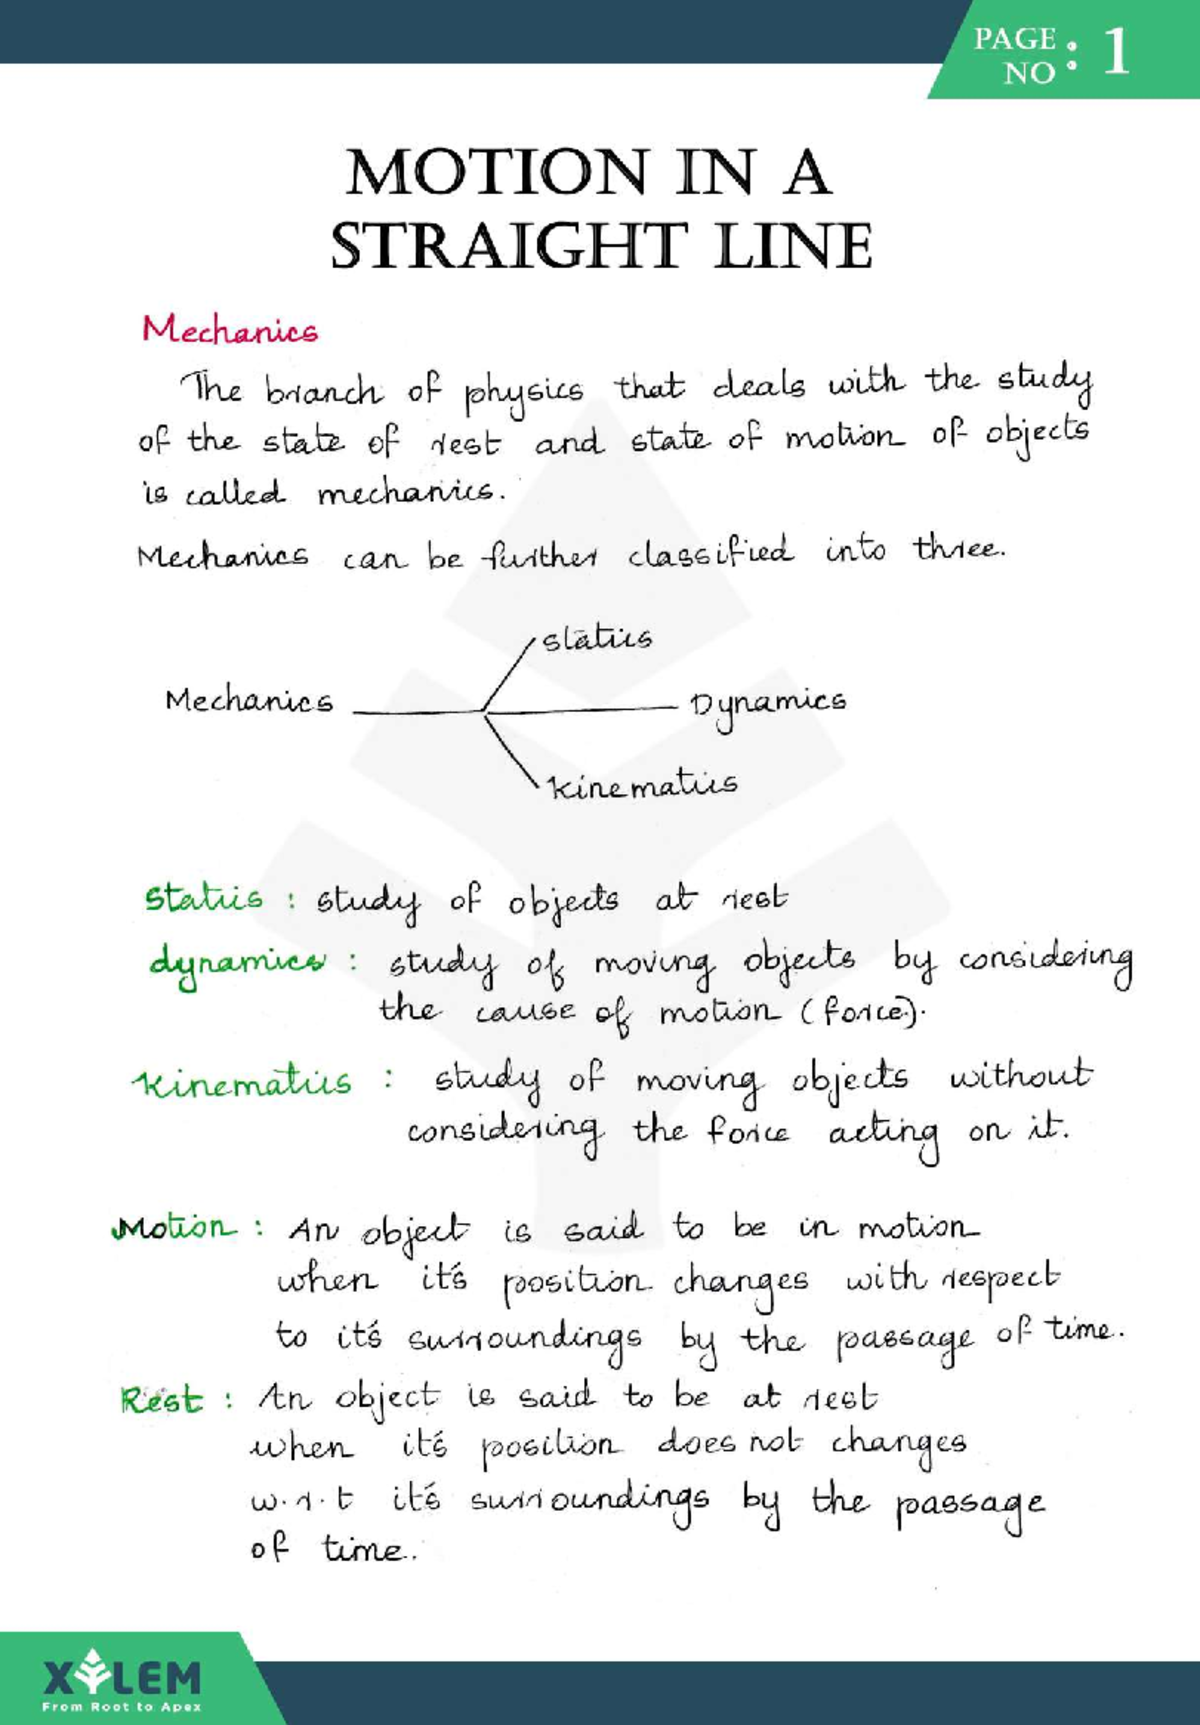 PAGE NO : 1
MOTION IN A
STRAIGHT LINE
Mechanics
The branch of physics that deals with the study
of the state of rest and state of motion of objects
is called mechanics.
Mechanics can be further classified into three.
statics
Mechanics
Dynamics
kinematics
Statics : study of objects at rest
dynamics : study of moving objects by considering
the cause of motion (force).
Kinematics : study of moving objects without
considering the force acting on it.
Motion : An object is said to be in motion
when it's position changes with respect
to it's surroundings by the passage of time.
Rest : An object is said to be at rest
when it's position does not changes
w.r.t it's surroundings by the passage
of time.
XYLEM
From Root to Apex